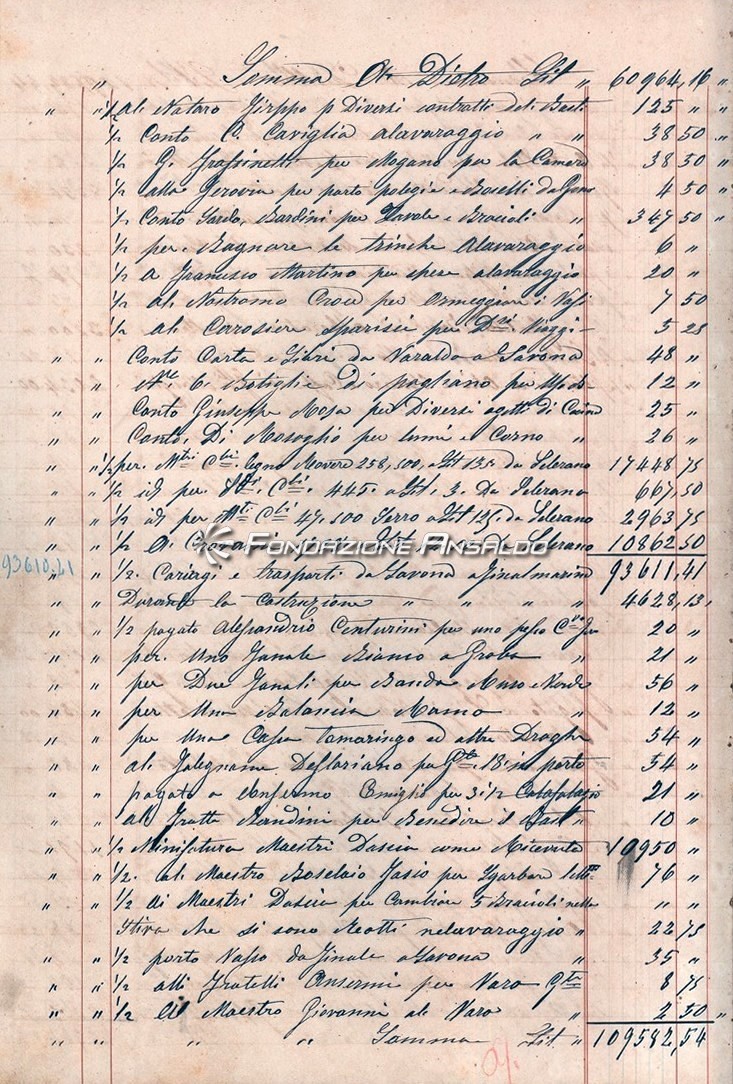 " Somma Di Dietro Lit " 60964,16 "
" "½ al Notaro Girppo p Diversi contratti del Bast. 125 " "
½ Conto C. Caviglia alavaraggio " " 38 50 "
½ G. Frassinetti per Mogano per la Camera 38 50 "
½ alla Ferovia per porto polegie e Boselli da 4 50 "
½ Conto Sardo, Bardini per Tavole e Bracioli " 347 50 "
½ per Bagnare le trinche alavaraggio 6 "
½ a Francesco Martino per spese alavaraggio 20 "
½ al Nostromo Croce per Ormeggiare i Vasi 7 50
½ al Carosiere Sparisci per D.si Viaggi 5 25
" " Conto Carta e Libri da Varaldo a Savona 48 "
" " N.le 6 Botiglie di pagliano per 12 "
" " Conto Giuseppe Rosa per Diversi ogetti di 25 "
" " Conto Di Mosoglio per lumi e Corno " 26 "
" "½ per. M.tri C.bi legno Rovere 258,500, a Lit 135 da Celerano 17448,75
" " ½ id per. C.bi 445. a Lit. 3. Da Celerano 667,50
" " ½ id per M.tri C.bi 47.500 Ferro a Lit 125. da Celerano 2963,75
½ a Giovanni Celerano 10862 50
FONDAZIONE ANSALDO
93610.41
" " ½. Cariagi e trasporti da Savona a Finalmarina 93611,41
" " Durante la Costruzione " " " " 4628,13,
" " ½ pagato Alessandrio Centurini per uno peso 20 "
" " per. Uno Fanale Bianco a Proba " 21 "
" " per Due Fanali per Banda Ruso e Verde 56 "
" " per Una Balancia Roma " 12 "
" " per Una Casa Tamaringo ed altre Droghe 54 "
" " al Falegname Desloriano per G.te 18 in porto 54 "
" " pagato a Consermo Emiglio per 3 ½ 21 "
" " al Fratte Nandini per Benedire il Bast " 10 "
" " ½ Manifatura Maestri Dascia come Ricevuta 10950 "
" " ½. al Maestro Boselaio Fasio per Sgarbare 76 "
" " ½ Ai Maestri Dascia per Cambiare 5 Bracioli nella " "
Stiva che si sono Reotti nelavaraggio " 22 75
" " ½ porto Vasso da Finale a Savona " 35 "
" " ½ alli Fratelli Anselmi per Varo G.te 8 75
" " ½ Al Maestro Giovanni al Varo " 2 50 "
" " " " Somma Lit " 109582,54